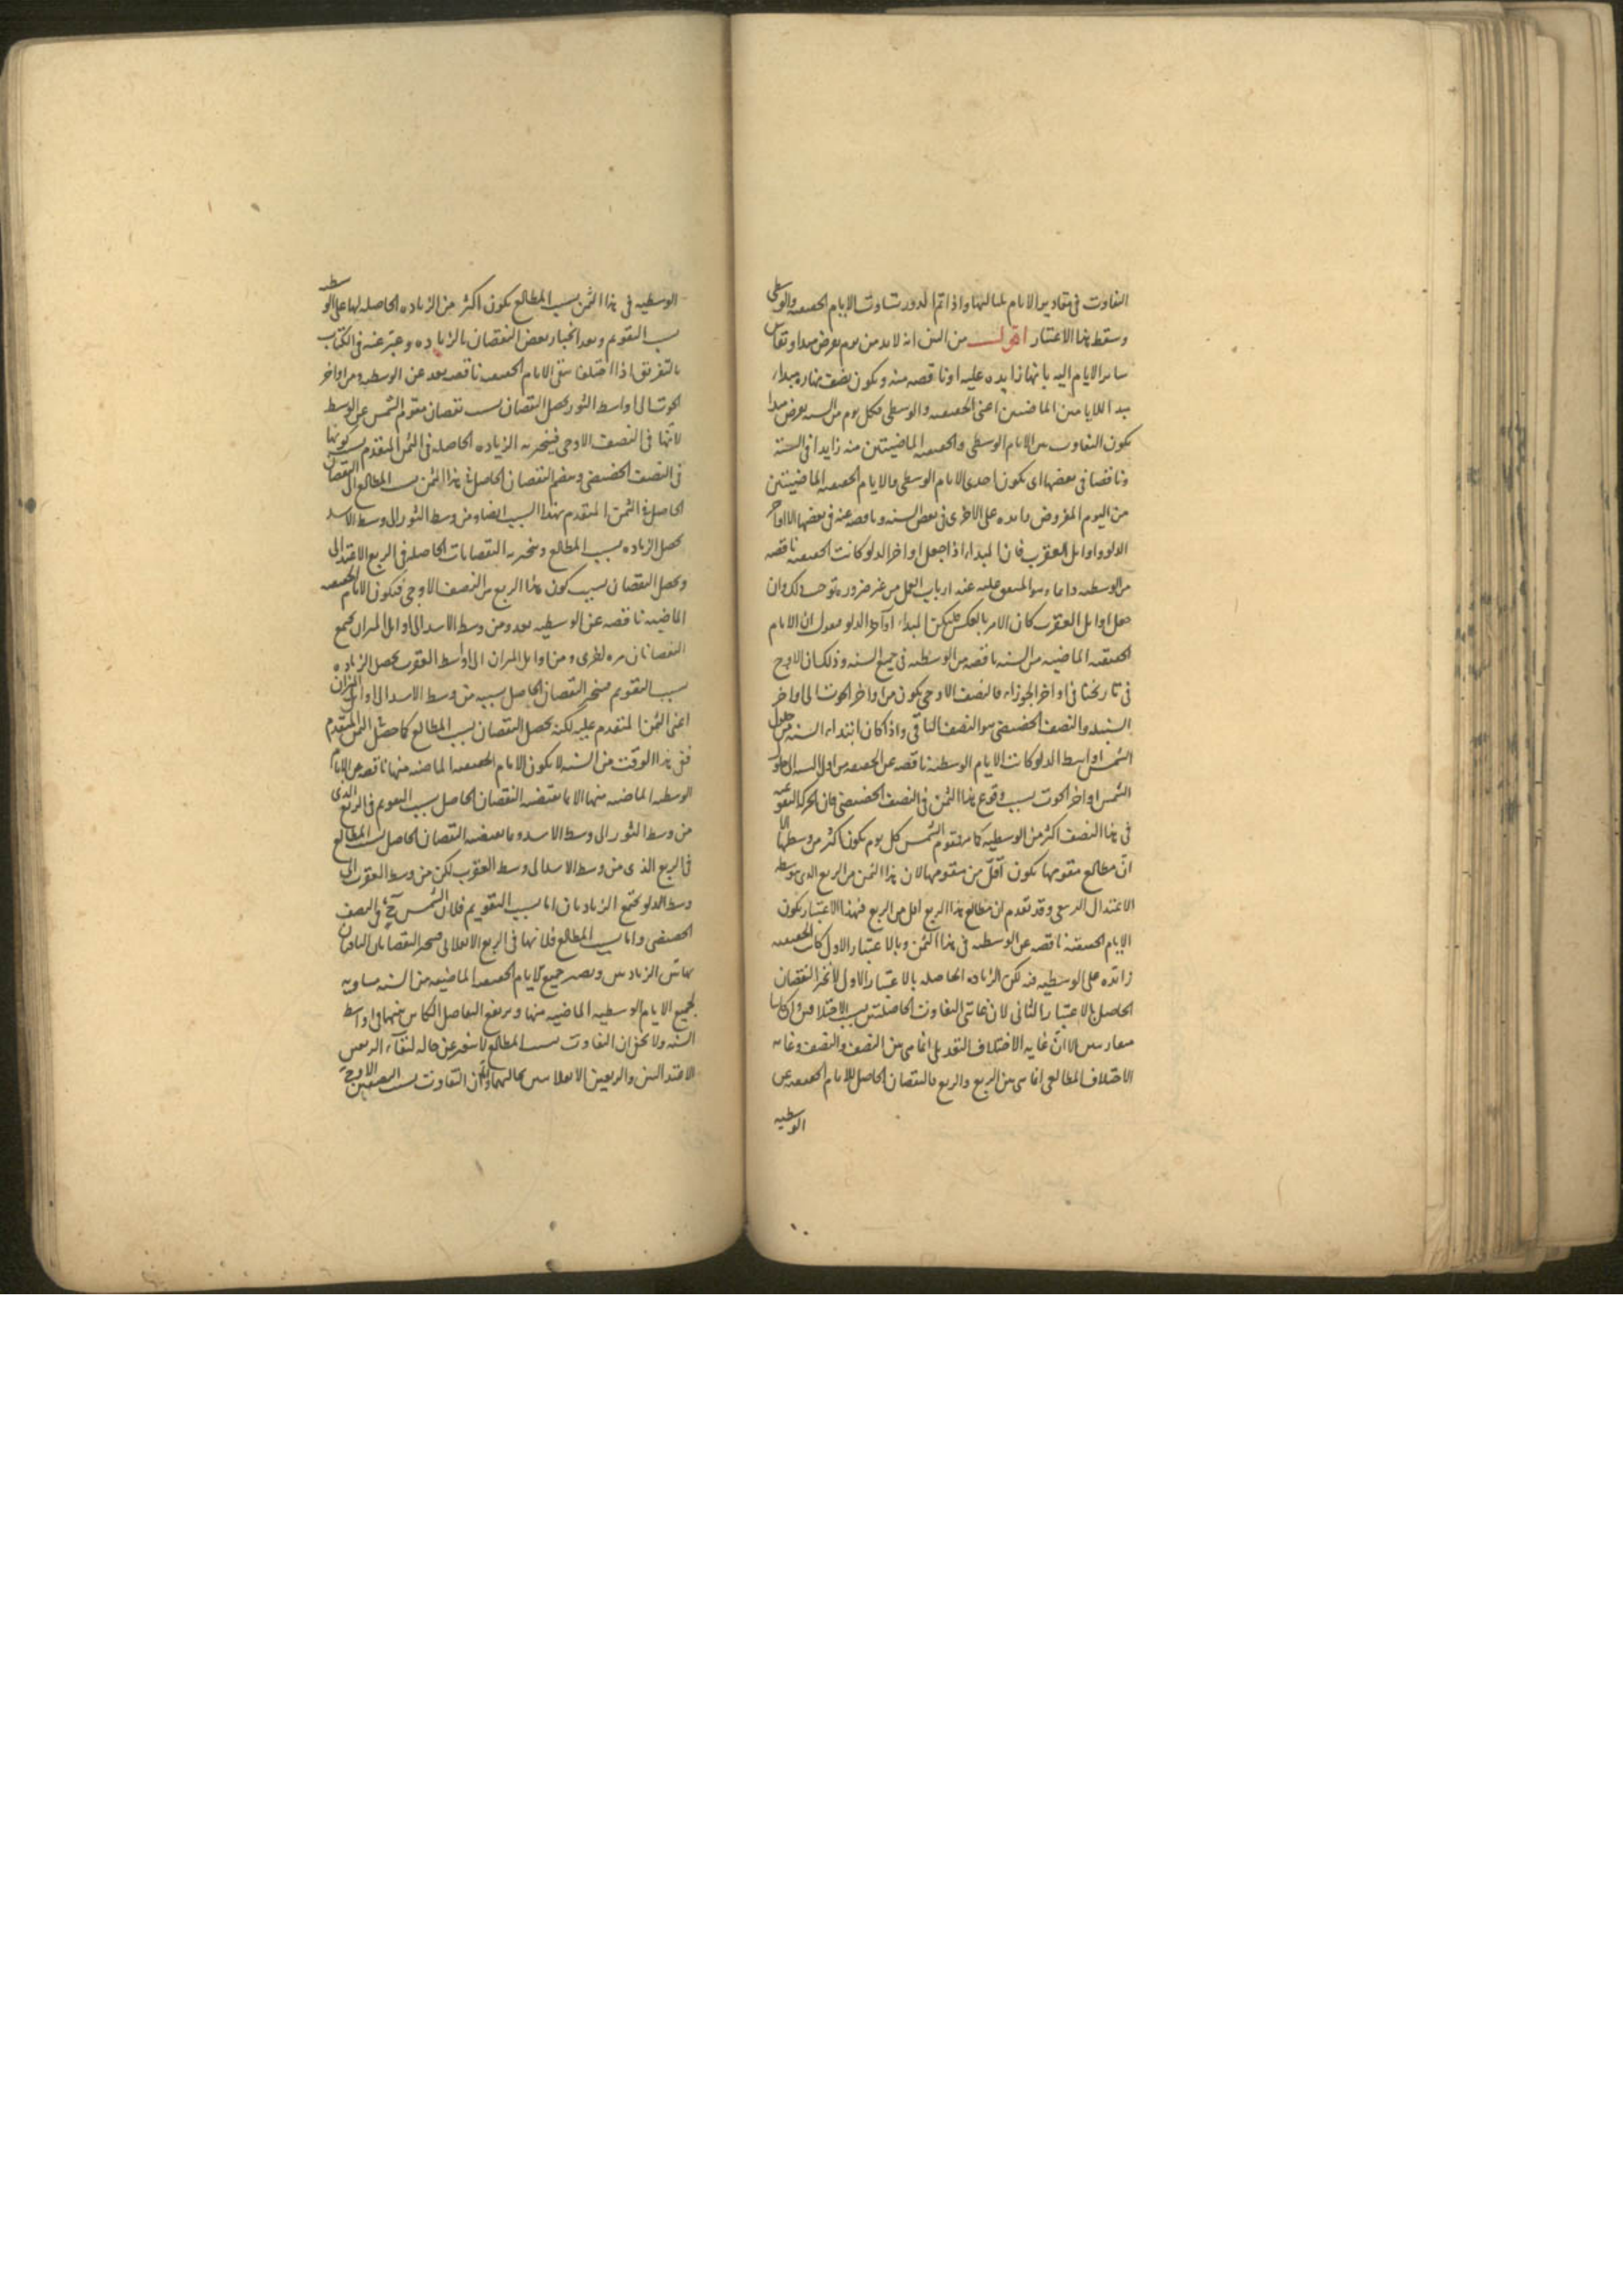 التفاوت فى مقادير الايام بلياليها واذا تم الدور تساوت الايام الحقيقيه والوسطى
وسقط هذا الاعتبار اقول من البين انه لابد من يوم يفرض مبدا وتقاس
ساير الايام اليه بانها زايده عليه او ناقصه منه ويكون نصف نهاره مبداء
الماضيين اعنى الحقيقيه والوسطى فكل يوم من السنه يفرض مبدا
يكون التفاوت بين الايام الوسطى والحقيقيه الماضيتين منه زايدا فى السنة
وناقصا فى بعضها اى يكون احدى الايام الوسطى والايام الحقيقيه الماضيتين
من اليوم المفروض زايده على الاخرى فى بعض السنه وناقصه عنه فى بعضها الا اواخر
الدلو واوايل العقرب فان المبداء اذا جعل اواخر الدلو كانت الحقيقيه ناقصه
من الوسطيه دايما وهو المتفق عليه عند ارباب العمل من غير ضروره توجب ذلك وان
جعل اوايل العقرب كان الامر بالعكس فليكن المبداء اواخر الدلو فنقول ان الايام
الحقيقيه الماضيه من السنه ناقصه من الوسطيه فى جميع السنه وذلك لان الاوج
فى تاريخنا فى اواخر الجوزاء فالنصف الاوجى يكون من اواخر الحوت الى اواخر
السنبله والنصف الحضيضى هو النصف الباقى واذا كان ابتداء السنه من حلول
الشمس اواسط الدلو كانت الايام الوسطيه ناقصه عن الحقيقيه من اول السنه الى حلول
الشمس اواخر الحوت بسبب وقوع هذا الثمن فى النصف الحضيضى فان الحركه التقويميه
فى هذا النصف اكثر من الوسطيه كما مر فتقويم الشمس كل يوم يكون اكثر من وسطها الا
ان مطالع مقومها يكون اقل من مقومها لان هذا الثمن من الربع الذى يتوسطه
الاعتدال الربيعى وقد تقدم ان مطالع هذا الربع اقل من الربع فبهذا الاعتبار يكون
الايام الحقيقيه ناقصه عن الوسطيه فى هذا الثمن وبالاعتبار الاول كانت الحقيقيه
زائده على الوسطيه فيه لكن الزياده الحاصله بالاعتبار الاول لا تجبر النقصان
الحاصل بالاعتبار الثانى لان غايتى التفاوت الحاصلتين بسبب الاختلافين وان كانتا
متقاربتين الا ان غايه الاختلاف التعديلى انما هى بين النصف والنصف وغايه
الاختلاف المطالعى انما هى بين الربع والربع فالنقصان الحاصل للايام الحقيقيه عن
الوسطيه
الوسطيه فى هذا الثمن بسبب المطالع يكون اكثر من الزياده الحاصله لها على الوسطيه
بسبب التقويم وبعد انجبار بعض النقصان بالزياده وعبر عنه فى الكتاب
بالتفريق اذا اختلفا تبقى الايام الحقيقيه ناقصه بعد عن الوسطيه ومن اواخر
الحوت الى اواسط الثور يحصل النقصان بسبب نقصان مقوم الشمس عن الوسط
لانها فى النصف الاوجى فينجبر به الزياده الحاصله فى الثمن المتقدم بسبب كونها
فى النصف الحضيضى وينضم النقصان الحاصل فى هذا الثمن بسبب المطالع الى النقصان
الحاصل فى الثمن المتقدم بهذا السبب ايضا ومن وسط الثور الى وسط الاسد
يحصل الزياده بسبب المطالع وينجبر به النقصانات الحاصله فى الربع الاعتدالى
ويحصل النقصان بسبب كون هذا الربع من النصف الاوجى فتكون الايام الحقيقيه
الماضيه ناقصه عن الوسطيه بعد ومن وسط الاسد الى اوايل الميزان يجتمع
النقصانان مره اخرى ومن اوايل الميزان الى اواسط العقرب يحصل الزياده
بسبب التقويم فينجبر النقصان الحاصل بسببه من وسط الاسد الى اوايل الميزان
اعنى الثمن المتقدم عليه لكنه يحصل النقصان بسبب المطالع كما حصل فى الثمن المتقدم
ففى هذا الوقت من السنه لا يكون الايام الحقيقيه الماضيه منها ناقصه عن الايام
الوسطيه الماضيه منها الا ما يقتضيه النقصان الحاصل بسبب التقويم فى الربع الذى
من وسط الثور الى وسط الاسد وما يقتضيه النقصان الحاصل بسبب المطالع
فى الربع الذى من وسط الاسد الى وسط العقرب لكن من وسط العقرب الى
وسط الدلو يجتمع الزيادتان اما بسبب التقويم فلان الشمس فى النصف
الحضيضى واما بسبب المطالع فلانها فى الربع الانقلابى فينجبر النقصانان الباقيان
بهاتين الزيادتين ويصير جميع الايام الحقيقيه الماضيه من السنه مساويه
لجميع الايام الوسطيه الماضيه منها ويرتفع التفاضل الكائن بينهما فى اواسط
السنه ولا يخفى ان التفاوت بسبب المطالع لا يتغير عن حاله لبقاء الربعين
الاعتداليين والربعين الانقلابيين بحالهما ولكن التفاوت بسبب النصفين الاوجى